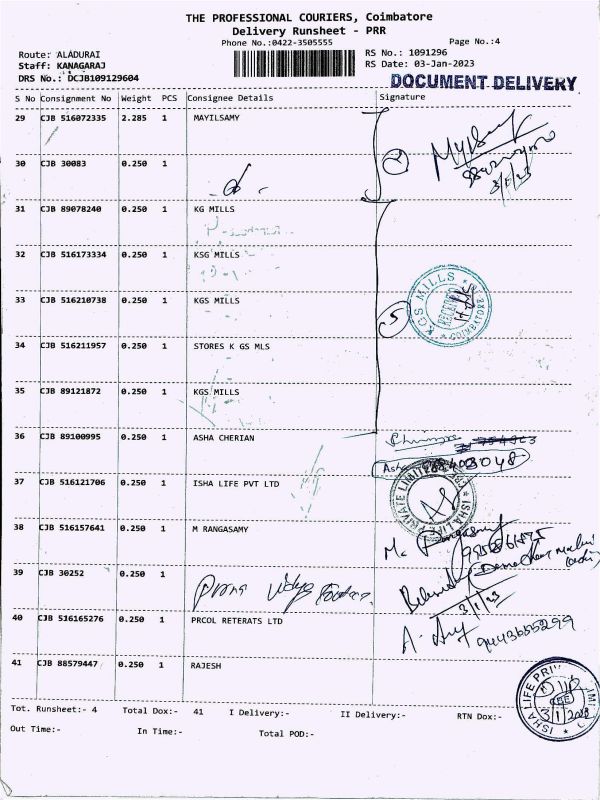 THE PROFESSIONAL COURIERS, Coimbatore
Delivery Runsheet - PRR
Phone No.:0422-3505555
Page No.:4
Route: ALADURAI
RS No.: 1091296
Staff: KANAGARAJ
RS Date: 03-Jan-2023
DRS No.: DCJB109129604
DOCUMENT DELIVERY
S No Consignment No Weight PCS Consignee Details Signature
29 CJB 516072335 2.285 1 MAYILSAMY
3/1/23
30 CJB 30083 0.250 1
2
31 CJB 89078240 0.250 1 KG MILLS
32 CJB 516173334 0.250 1 KSG MILLS
33 CJB 516210738 0.250 1 KGS MILLS
5
KGS MILLS
RECEIVED
COIMBATORE
34 CJB 516211957 0.250 1 STORES K GS MLS
35 CJB 89121872 0.250 1 KGS MILLS
36 CJB 89100995 0.250 1 ASHA CHERIAN
Asha
37 CJB 516121706 0.250 1 ISHA LIFE PVT LTD
ISHA LIFE PRIVATE LIMITED
38 CJB 516157641 0.250 1 M RANGASAMY
39 CJB 30252 0.250 1
3/1/23
40 CJB 516165276 0.250 1 PRCOL RETERATS LTD
9443655299
41 CJB 88579447 0.250 1 RAJESH
ISHA LIFE PRI
3/1/2023
Tot. Runsheet:- 4 Total Dox:- 41 I Delivery:- II Delivery:- RTN Dox:-
Out Time:- In Time:- Total POD:-